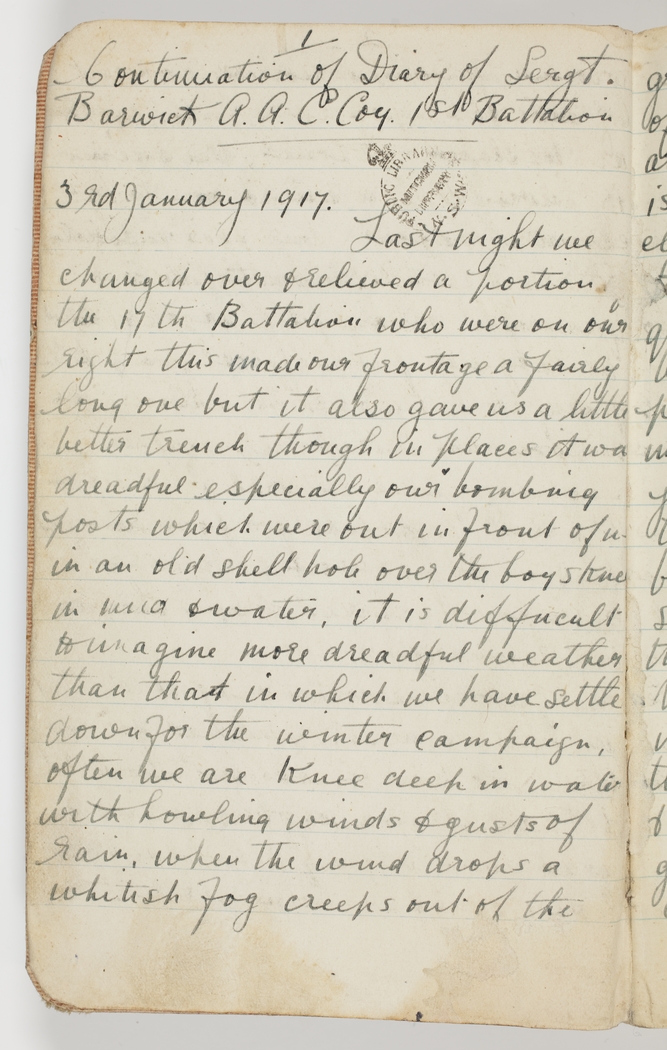 1
Continuation of Diary of Sergt.
Barwick A. A. C Coy. 1st Battalion
PUBLIC LIBRARY N.S.W.
3rd January 1917.
Last night we
changed over & relieved a portion
the 17th Battalion who were on our
right this made our frontage a fairly
long one but it also gave us a little
better trench though in places it wa
dreadful especially our bombing
posts which were out in front of u
in an old shell hole over the boys knee
in mud & water, it is diffucult
to imagine more dreadful weather
than that in which we have settle
down for the winter campaign,
often we are Knee deep in wate
with howling winds & gusts of
rain, when the wind drops a
whitish fog creeps out of the